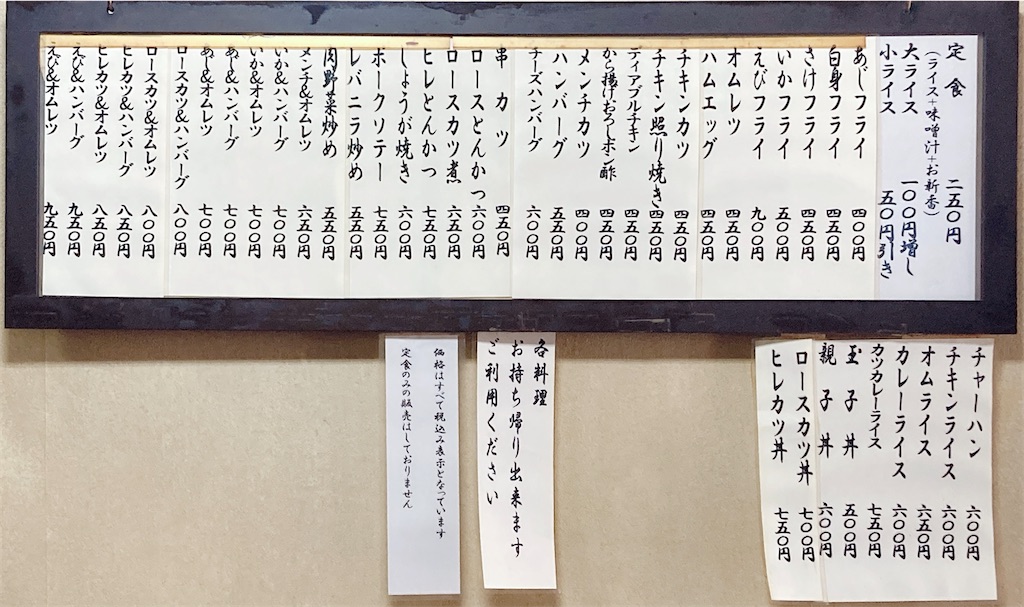 定食 二五〇円
(ライス+味噌汁+お新香)
大ライス 一〇〇円増し
小ライス 五〇円引き
あじフライ 四〇〇円
白身フライ 四五〇円
さけフライ 四五〇円
いかフライ 五〇〇円
えびフライ 九〇〇円
オムレツ 四五〇円
ハムエッグ 四五〇円
チキンカツ 四五〇円
チキン照り焼き 四五〇円
ディアブルチキン 四五〇円
から揚げおろしポン酢 四五〇円
メンチカツ 四〇〇円
ハンバーグ 五五〇円
チーズハンバーグ 六〇〇円
串カツ 四五〇円
ロースとんかつ 六〇〇円
ロースカツ煮 六五〇円
ヒレとんかつ 七五〇円
しょうが焼き 六〇〇円
ポークソテー 七五〇円
レバニラ炒め 五五〇円
肉野菜炒め 五五〇円
メンチ&オムレツ 六五〇円
いか&ハンバーグ 七〇〇円
いか&オムレツ 七〇〇円
あじ&ハンバーグ 七〇〇円
あじ&オムレツ 七〇〇円
ロースカツ&ハンバーグ 八〇〇円
ロースカツ&オムレツ 八〇〇円
ヒレカツ&ハンバーグ 八五〇円
ヒレカツ&オムレツ 八五〇円
えび&ハンバーグ 九五〇円
えび&オムレツ 九五〇円
チャーハン 六〇〇円
チキンライス 六〇〇円
オムライス 六五〇円
カレーライス 六〇〇円
カツカレーライス 七五〇円
玉子丼 五〇〇円
親子丼 六〇〇円
ロースカツ丼 七〇〇円
ヒレカツ丼 七五〇円
各料理
お持ち帰り出来ます
ご利用ください
価格はすべて税込み表示となっています
定食のみの販売はしておりません